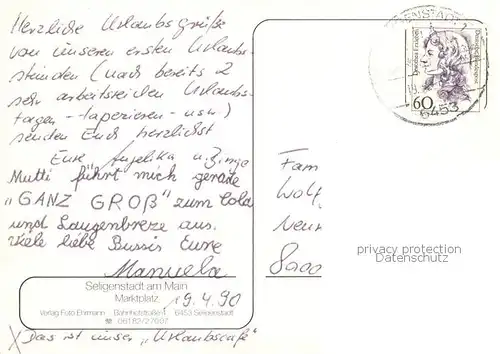 Herzliche Urlaubsgrüße
von unseren ersten Urlaubs-
stunden (nach bereits 2
sehr arbeitsreichen Urlaubs-
tagen - tapezieren - usw.)
senden Euch herzlichst
Eure Angelika u.
Mutti führt mich gerade
"GANZ GROß" zum Cola
und Laugenbreze aus.
Viele liebe Bussis Eure
Manuela
Seligenstadt am Main
Marktplatz
19.4.90
Verlag Foto Ehrmann Bahnhofstraße 6453 Seligenstadt
☎ 06182/27697
X Das ist unser "Urlaubscafé"
60
6453
Fam
Wolf
Neu
8000
privacy protection
Datenschutz